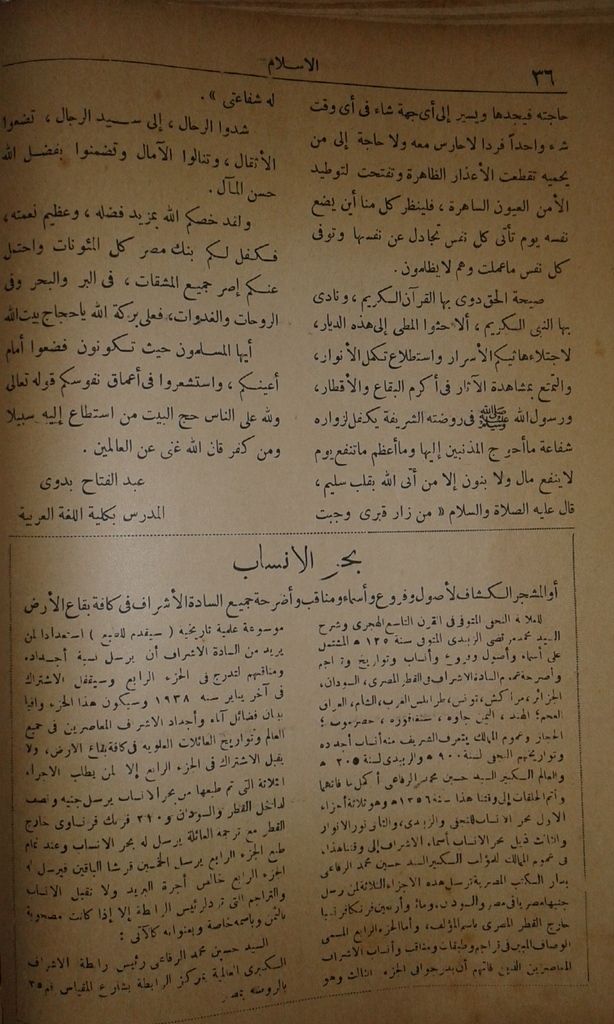 ٣٦
الاسلام
حاجته فيجدها ويسير إلى أى جهة شاء فى أى وقت
شاء واحداً فردا لاحارس معه ولا حاجة إلى من
يحميه تقطعت الأعذار الظاهرة وتفتحت لتوطيد
الأمن العيون الساهرة ، فلينظر كل منا أين يضع
نفسه يوم تأتى كل نفس تجادل عن نفسها وتوفى
كل نفس ماعملت وهم لا يظلمون.
صيحة الحق دوى بها القرآن الكريم ، ونادى
بها النبى الكريم ، ألا حثوا المطى إلى هذه الديار،
لاجتلاء هاتيكم الأسرار واستطلاع تلكم الأنوار،
والتمتع بمشاهدة الآثار فى أكرم البقاع والأقطار،
ورسول الله ﷺ فى روضته الشريفة يكفل لزواره
شفاعة ما أحوج المذنبين إليها وما أعظم ماتنفع يوم
لا ينفع مال ولا بنون إلا من أتى الله بقلب سليم ،
قال عليه الصلاة والسلام « من زار قبرى وجبت
له شفاعتى » .
شدوا الرحال ، إلى سيد الرجال ، تضعوا
الأثقال ، وتنالوا الآمال وتضمنوا بفضل الله
حسن المآل .
ولقد خصكم الله بمزيد فضله ، وعظيم نعمته ،
فكفل لكم بنك مصر كل المئونات واحتمل
عنكم إصر جميع المشقات ، فى البر والبحر وفى
الروحات والغدوات، فعلى بركة الله ياحجاج بيت الله
أيها المسلمون حيث تكونون فضعوا أمام
أعينكم ، واستشعروا فى أعماق نفوسكم قوله تعالى
ولله على الناس حج البيت من استطاع إليه سبيلا
ومن كفر فان الله غنى عن العالمين .
عبد الفتاح بدوى
المدرس بكلية اللغة العربية
بحر الانساب
أو المشجر الكشاف لأصول وفروع وأسماء ومناقب وأضرحة جميع السادة الأشراف فى كافة بقاع الأرض
للعلامة النجفى المتوفى فى القرن التاسع الهجرى وشرح
السيد محمد مرتضى الزبيدى المتوفى سنة المشتمل
على أسماء وأصول وفروع وأنساب وتواريخ وتراجم
وأضرحة السادة الاشراف فى القطر المصرى ، السودان،
الجزائر، مراكش، تونس، طرابلس الغرب، الشام، العراق
العجم، الهند ، اليمن جاوه ، حضرموت ،
الحجاز وعموم الممالك يتعرف الشريف منه أنساب أجداده
وتواريخهم النجفى لسنة ٩٠٠ والزبيدى لسنة
والعالم الكبير السيد حسين محمد الرفاعى أكمل ما فاتهما
وأتم الحلقات إلى وقتنا هذا سنة ١٣٥٦ وهو ثلاثة أجزاء
الاول بحر الانساب للنجفى والزبيدى، والثانى نور الانوار
والثالث ذيل بحر الانساب أسماء الاشراف إلى وقتنا هذا
فى عموم الممالك لمؤلفه الكبير السيد حسين محمد الرفاعى
بدار الكتب المصرية ترسل هذه الاجزاء الثلاثة لمن يرسل
جنيها مصريا فى مصر والسودان، ومائة وأربعين فرنكا فرنسيا
خارج القطر المصرى باسم المؤلف، وأما الجزء الرابع المسمى
فى تراجم وطبقات ومناقب وأنساب الاشراف
المعاصرين الذين فاتهم أن يدرجوا فى الجزء الثالث وهو
موسوعة علمية تاريخية ( سيقدم للطبع ) استعدادا لمن
يريد من السادة الاشراف أن يرسل نسبة أجداده
ومناقبهم لتدرج فى الجزء الرابع وسيقفل الاشتراك
فى آخر يناير سنه ١٩٣٨ وسيكون هذا الجزء وافيا
ببيان فضائل آباء وأجداد الاشراف المعاصرين فى جميع
العالم وتواريخ العائلات العلوية فى كافة بقاع الارض، ولا
يقبل الاشتراك فى الجزء الرابع إلا لمن يطلب الاجزاء
الثلاثة التى تم طبعها من بحر الانساب يرسل جنيه ونصف
لداخل القطر والسودان و٢١٠ فرنك فرنساوى خارج
القطر مع ترجمة العائلة يرسل له بحر الانساب وعند تمام
طبع الجزء الرابع يرسل الخمسين قرشا الباقين فيرسل له
الجزء الرابع خالص أجرة البريد ولا تقبل الانساب
والتراجم التى ترد لرئيس الرابطة إلا إذا كانت مصحوبة
بالثمن وباسمه خاصة وبعنوانه كالآتى :
السيد حسين محمد الرفاعى رئيس رابطة الاشراف
الكبرى العالمية بمركز الرابطة بشارع المقياس نمرة ٣٥
بالروضة بمصر